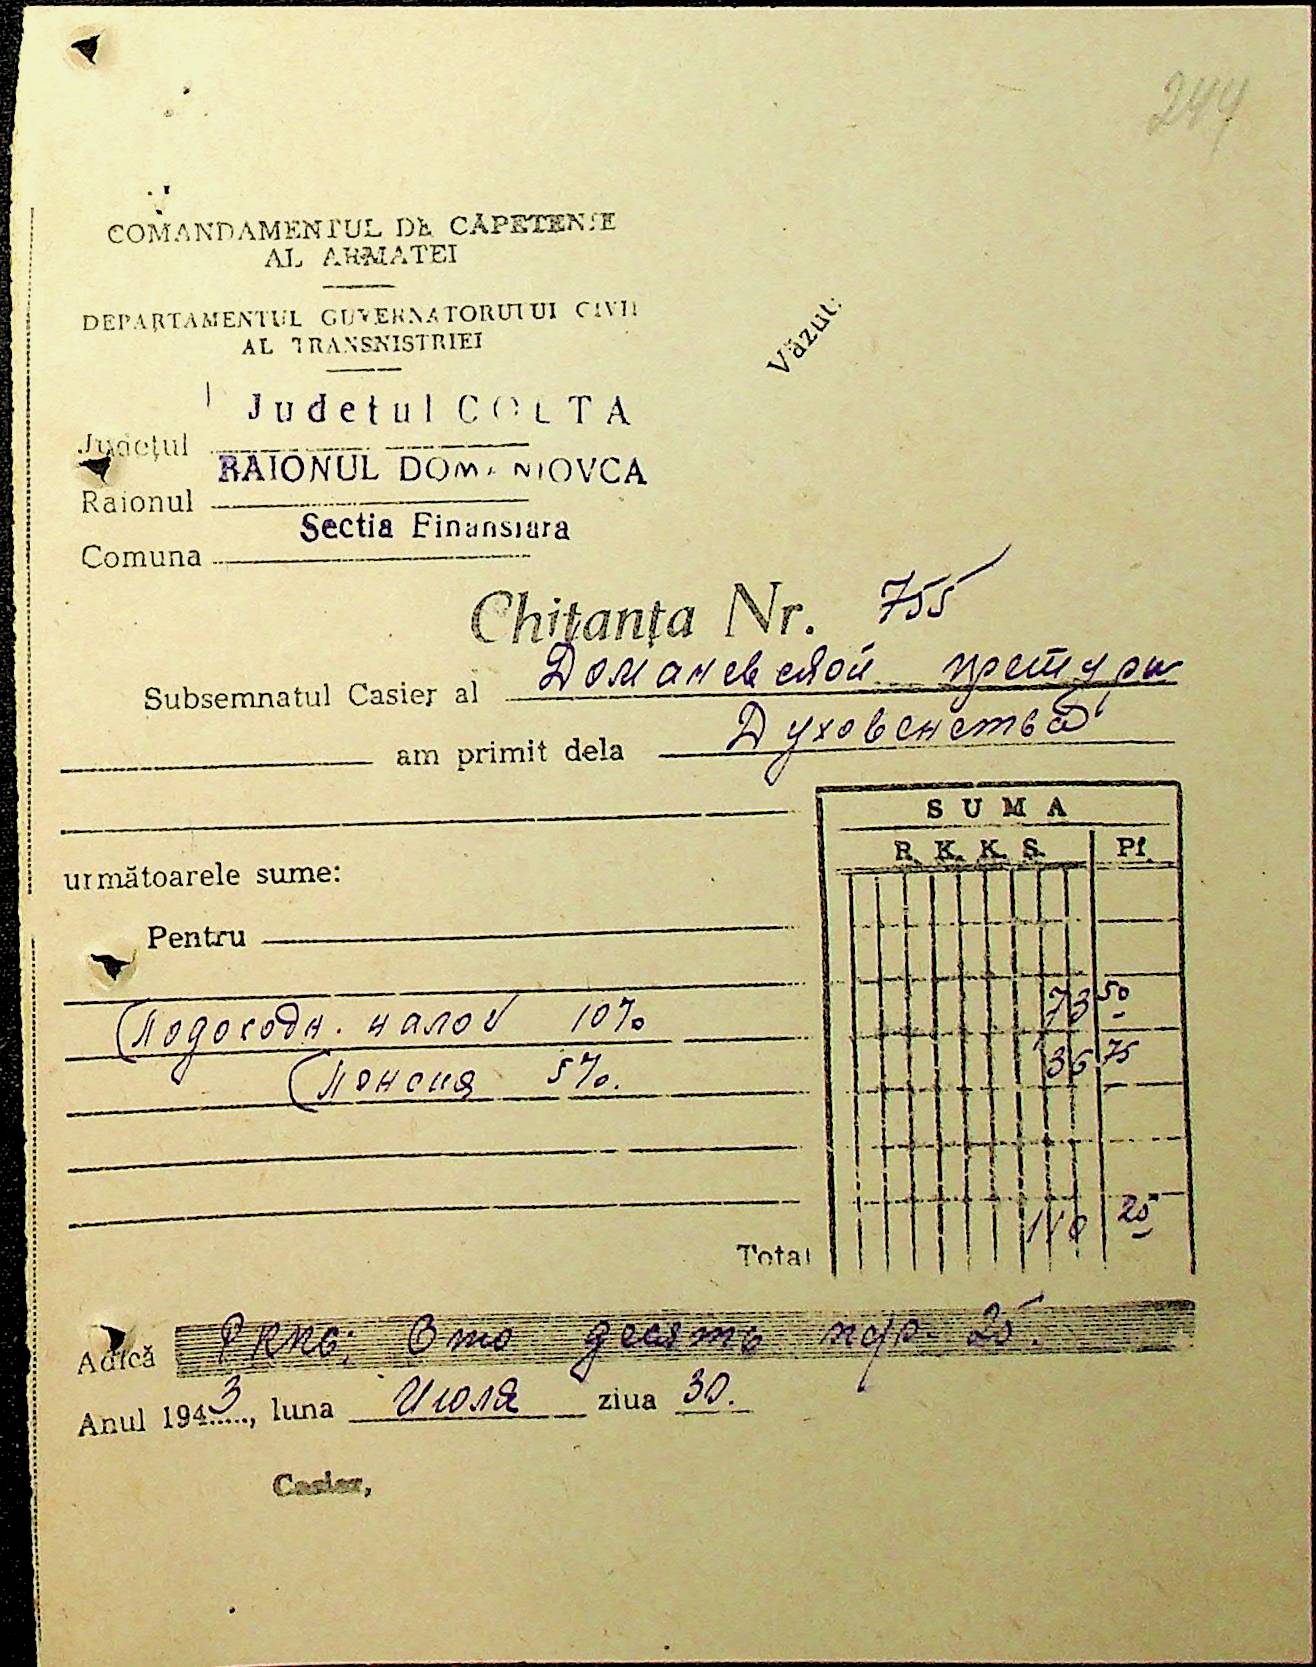 244
COMANDAMENTUL DE CAPETENIE
AL ARMATEI
DEPARTAMENTUL GUVERNATORUTUI CIVIL
AL TRANSNISTRIEI
Văzut:
Judetul COLTA
Județul
RAIONUL DOMANIOVCA
Raionul
Sectia Finansiara
Comuna
Chitanța Nr. 755
Subsemnatul Casier al Доманевской претуры
am primit dela Духовенства
SUMA
R. K. K. S. Pf.
următoarele sume:
Pentru
Подоходн. налог 10% 73 50
Пенсия 5%. 36 75
Total 110 25
Adică РККС: Сто десять пф. 25.
Anul 1943, luna Июля ziua 30.
Casier,